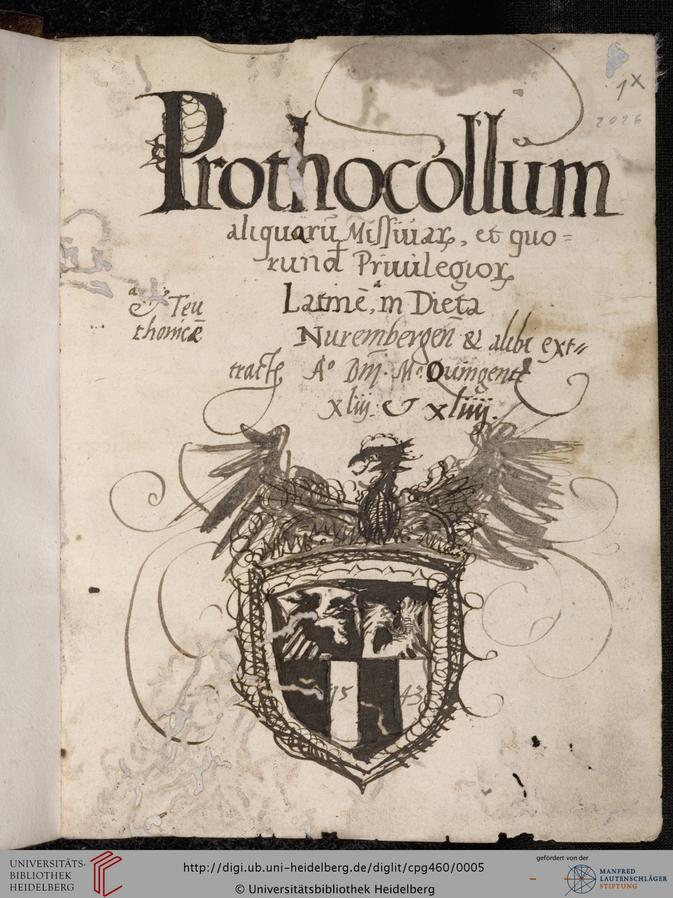 1x
2026
Prothocollum
aliquarū Missiuarꝝ, et quo=
rund Priuilegiorꝝ
Latinè, in Dieta
& Teu
thonicæ
Nurembergeñ & alibi ext=
tractꝫ Aº Dm̄. Mº Quingentº
xliij & xliiij.
15 43
UNIVERSITÄTS-
BIBLIOTHEK
HEIDELBERG
http://digi.ub.uni-heidelberg.de/diglit/cpg460/0005
© Universitätsbibliothek Heidelberg
gefördert von der
MANFRED
LAUTENSCHLÄGER
STIFTUNG